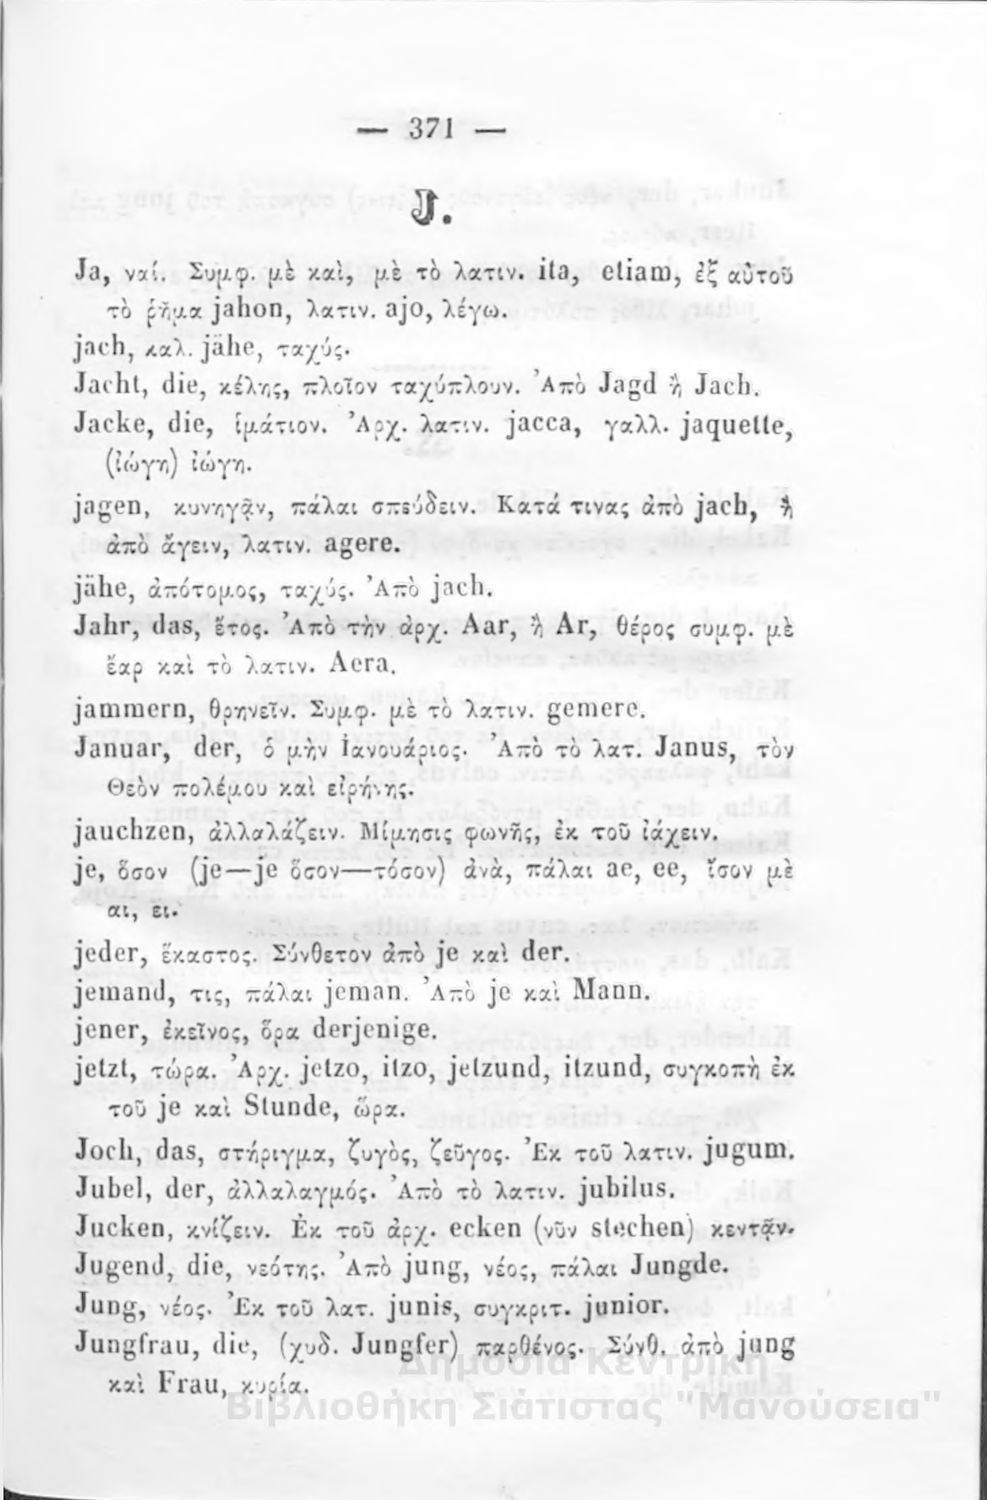 — 371 —
J.
Ja, ναί. Συμφ. μὲ καὶ, μὲ τὸ λατιν. ita, etiam, ἐξ αὐτοῦ
τὸ ῥῆμα jahon, λατιν. ajo, λέγω.
jach, καλ. jähe, ταχύς.
Jacht, die, κέλης, πλοῖον ταχύπλουν. Ἀπὸ Jagd ἢ Jach.
Jacke, die, ἱμάτιον. Ἀρχ. λατιν. jacca, γαλλ. jaquette,
(ἰώγη) ἰώγη.
jagen, κυνηγᾷν, πάλαι σπεύδειν. Κατά τινας ἀπὸ jach, ἢ
ἀπὸ ἄγειν, λατιν. agere.
jähe, ἀπότομος, ταχύς. Ἀπὸ jach.
Jahr, das, ἔτος. Ἀπὸ τὴν ἀρχ. Aar, ἢ Ar, θέρος συμφ. μὲ
ἔαρ καὶ τὸ λατιν. Aera.
jammern, θρηνεῖν. Συμφ. μὲ τὸ λατιν. gemere.
Januar, der, ὁ μὴν Ἰανουάριος. Ἀπὸ τὸ λατ. Janus, τὸν
Θεὸν πολέμου καὶ εἰρήνης.
jauchzen, ἀλλαλάζειν. Μίμησις φωνῆς, ἐκ τοῦ ἰάχειν.
je, ὅσον (je—je ὅσον—τόσον) ἀνὰ, πάλαι ae, ee, ἴσον μὲ
αι, ει.
jeder, ἕκαστος. Σύνθετον ἀπὸ je καὶ der.
jemand, τις, πάλαι jeman. Ἀπὸ je καὶ Mann.
jener, ἐκεῖνος, ὅρα derjenige.
jetzt, τώρα. Ἀρχ. jetzo, itzo, jetzund, itzund, συγκοπὴ ἐκ
τοῦ je καὶ Stunde, ὥρα.
Joch, das, στήριγμα, ζυγὸς, ζεῦγος. Ἐκ τοῦ λατιν. jugum.
Jubel, der, ἀλλαλαγμός. Ἀπὸ τὸ λατιν. jubilus.
Jucken, κνίζειν. Ἐκ τοῦ ἀρχ. ecken (νῦν stechen) κεντᾷν.
Jugend, die, νεότης. Ἀπὸ jung, νέος, πάλαι Jungde.
Jung, νέος. Ἐκ τοῦ λατ. junis, συγκριτ. junior.
Jungfrau, die, (χυδ. Jungfer) παρθένος. Σύνθ. ἀπὸ jung
καὶ Frau, κυρία.
Δημόσια Κεντρική
Βιβλιοθήκη Σιάτιστας "Μανούσεια"